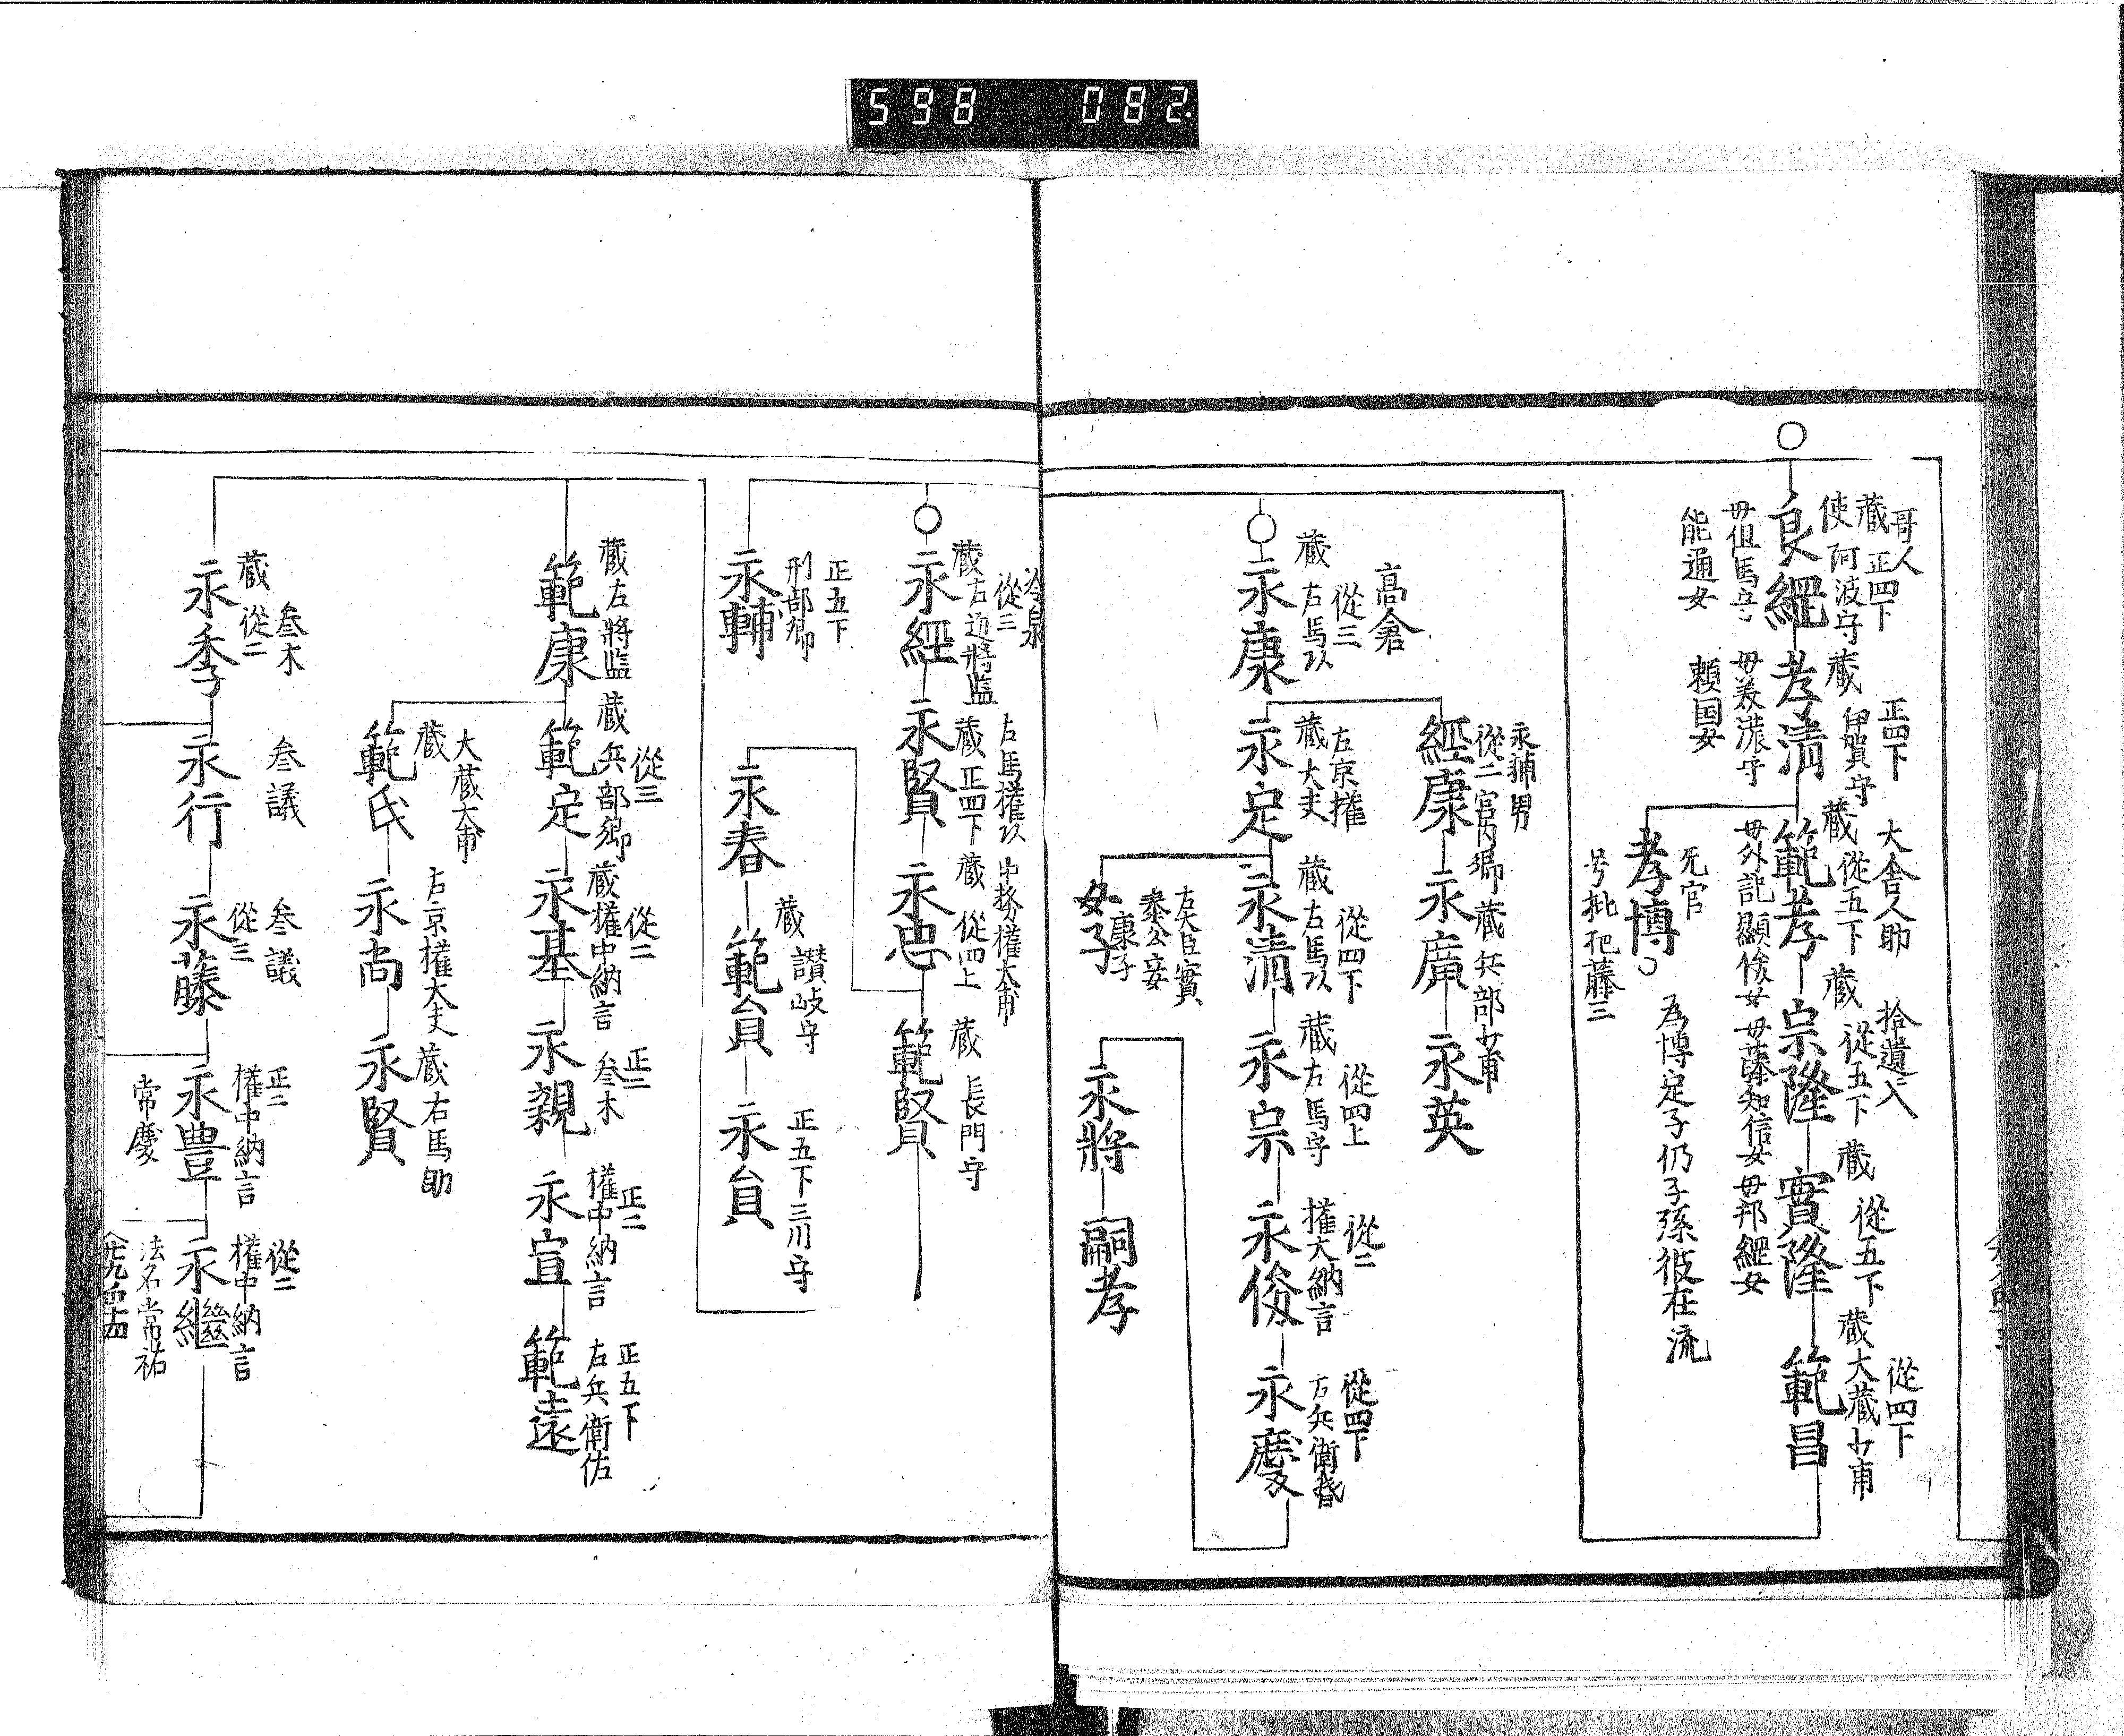 598 082
哥人
蔵 正四下
使 阿波守
良經
母但馬守
能通女
正四下
蔵 伊賀守
孝清
母美濃守
頼国女
大舎人助
蔵 從五下
範孝
母外記顕俊女
死官
孝博
号枇杷藤三
為博定子仍子孫彼在流
拾遺入
蔵 從五下
宗隆
母藤知信女
蔵 從五下
實隆
母邦經女
從四下
蔵大蔵少甫
範昌
永輔男
從二宮内卿
經康
蔵兵部少甫
永廣
永英
高倉
從三
蔵 右馬頭
永康
左京權
蔵大夫
永定
從四下
蔵右馬頭
永清
從四上
蔵右馬守
永宗
從二
權大納言
永俊
從四下
永慶
左大臣實
泰公室
康子
女子
永將
嗣孝
冷泉
從三
蔵左近將監
永經
右馬權頭
蔵 正四下
永賢
中務權大甫
蔵 從四上
永忠
蔵 長門守
範賢
正五下
刑部卿
永輔
永春
蔵 讃岐守
範貟
正五下三川守
永貟
蔵左將監
範康
從三
蔵兵部卿
範定
從二
蔵權中納言
永基
正二
叁木
永親
正二
權中納言
永宣
正五下
右兵衛佐
範遠
大蔵大甫
蔵
範氏
右京權大夫
永尚
蔵右馬助
永賢
叁木
蔵 從二
永季
叁議
永行
叁議
從三
永藤
正二
權中納言
永豊
常慶
從二
權中納言
永繼
法名常祐